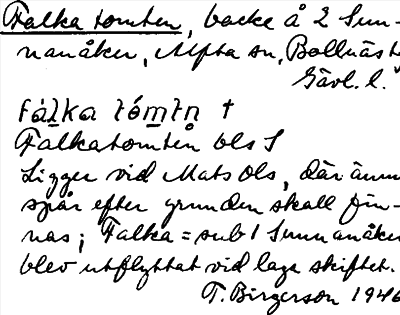 Falka tomten, backe å 2 Sun-
nanåker, Alfta sn, Bollnäs t
Gävl. l.
fálka tómtn †
Falkatomten bls S
Ligger vid Mats Ols, där ännu
spår efter grunden skall fin-
nas; Falka = sub 1 Sunnanåker
blev utflyttat vid laga skiftet.
T. Birgerson 1946